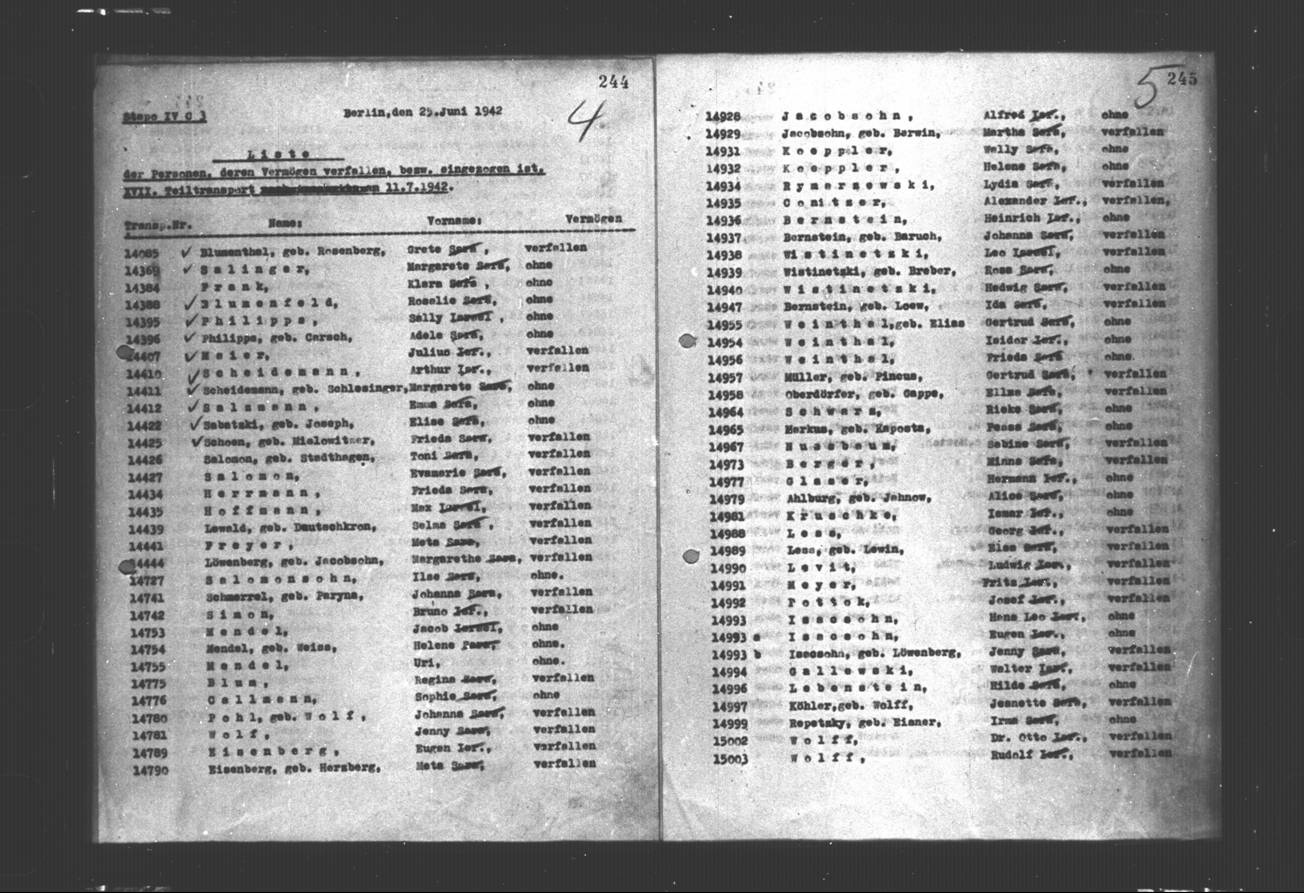 244
Stapo IV C 3
Berlin,den 25.Juni 1942
4
Liste
der Personen, deren Vermögen verfallen, bezw. eingezogen ist.
XVII. Teiltransport 11.7.1942.
Transp.Nr. Name: Vorname: Vermögen
14085 ✓ Blumenthal, geb. Rosenberg, Grete Sara, verfallen
14369 ✓ Salinger, Margarete Sara, ohne
14384 Frank, Klara Sara, ohne
14388 ✓ Blumenfeld, Rosalie Sara, ohne
14395 ✓ Philipps, Sally Israel, ohne
14396 ✓ Philipps, geb. Carsch, Adele Sara, ohne
14407 ✓ Meier, Julius Isr., verfallen
14410 ✓ Scheidemann, Arthur Isr., verfallen
14411 ✓ Scheidemann, geb. Schlesinger, Margarete Sara, ohne
14412 ✓ Salzmann, Emma Sara, ohne
14422 ✓ Sabatzki, geb. Joseph, Elise Sara, ohne
14425 ✓ Schoen, geb. Mielowitzer, Frieda Sara, verfallen
14426 Salomon, geb. Stadthagen, Toni Sara, verfallen
14427 Salomon, Evamarie Sara, verfallen
14434 Herrmann, Frieda Sara, verfallen
14435 Hoffmann, Max Israel, verfallen
14439 Lewald, geb. Deutschkron, Selma Sara, verfallen
14441 Freyer, Meta Sara, verfallen
14444 Löwenberg, geb. Jacobsohn, Margarethe Sara, verfallen
14727 Salomonsohn, Ilse Sara, ohne.
14741 Schmerrel, geb. Paryna, Johanna Sara, verfallen
14742 Simon, Bruno Isr., verfallen
14753 Mendel, Jacob Israel, ohne
14754 Mendel, geb. Weiss, Helene Sara, ohne.
14755 Mendel, Uri, ohne.
14775 Blum, Regina Sara, verfallen
14776 Callmann, Sophie Sara, ohne
14780 Pohl, geb. Wolf, Johanna Sara, verfallen
14781 Wolf, Jenny Sara, verfallen
14789 Eisenberg, Eugen Isr., verfallen
14790 Eisenberg, geb. Herzberg, Meta Sara, verfallen
5 245
14928 Jacobsohn, Alfred Isr., ohne
14929 Jacobsohn, geb. Berwin, Martha Sara, verfallen
14931 Koeppler, Welly Sara, ohne
14932 Koeppler, Helene Sara, ohne
14934 Rymarzewski, Lydia Sara, verfallen
14935 Conitzer, Alexander Isr., verfallen,
14936 Bernstein, Heinrich Isr., ohne
14937 Bernstein, geb. Baruch, Johanna Sara, verfallen
14938 Wistinetzki, Leo Israel, verfallen
14939 Wistinetzki, geb. Breber, Rosa Sara, ohne
14940 Wistinetzki, Hedwig Sara, verfallen
14947 Bernstein, geb. Loew, Ida Sara, verfallen
14955 Weinthal, geb. Elias Gertrud Sara, ohne
14954 Weinthal, Isidor Isr., ohne
14956 Weinthal, Frieda Sara ohne
14957 Müller, geb. Pincus, Gertrud Sara, verfallen
14958 Oberdörfer, geb. Gappe, Ellze Sara, verfallen
14964 Schwarz, Rieke Sara, ohne
14965 Markus, geb. Kaposta, Pessa Sara, ohne
14967 Nussbaum, Sabine Sara, verfallen
14973 Berger, Minna Sara, verfallen
14977 Glaser, Hermann Isr., ohne
14979 Ahlburg, geb. Jahnow, Alice Sara, ohne
14981 Kruschke, Ismar Isr., ohne
14988 Less, Georg Isr., verfallen
14989 Less, geb. Lewin, Elsa Sara, verfallen
14990 Levit, Ludwig Isr., verfallen
14991 Meyer, Fritz Isr., verfallen
14992 Pottok, Josef Isr., verfallen
14993 Isacsohn, Hans Leo Isr., ohne
14993 a Isacsohn, Eugen Isr., ohne
14993 b Isacsohn, geb. Löwenberg, Jenny Sara, verfallen
14994 Gallewski, Walter Isr., verfallen
14996 Lebenstein, Hilde Sara, ohne
14997 Köhler,geb. Wolff, Jeanette Sara, verfallen
14999 Repetzky, geb. Eisner, Irma Sara, ohne
15002 Wolff, Dr. Otto Isr., verfallen
15003 Wolff, Rudolf Isr., verfallen